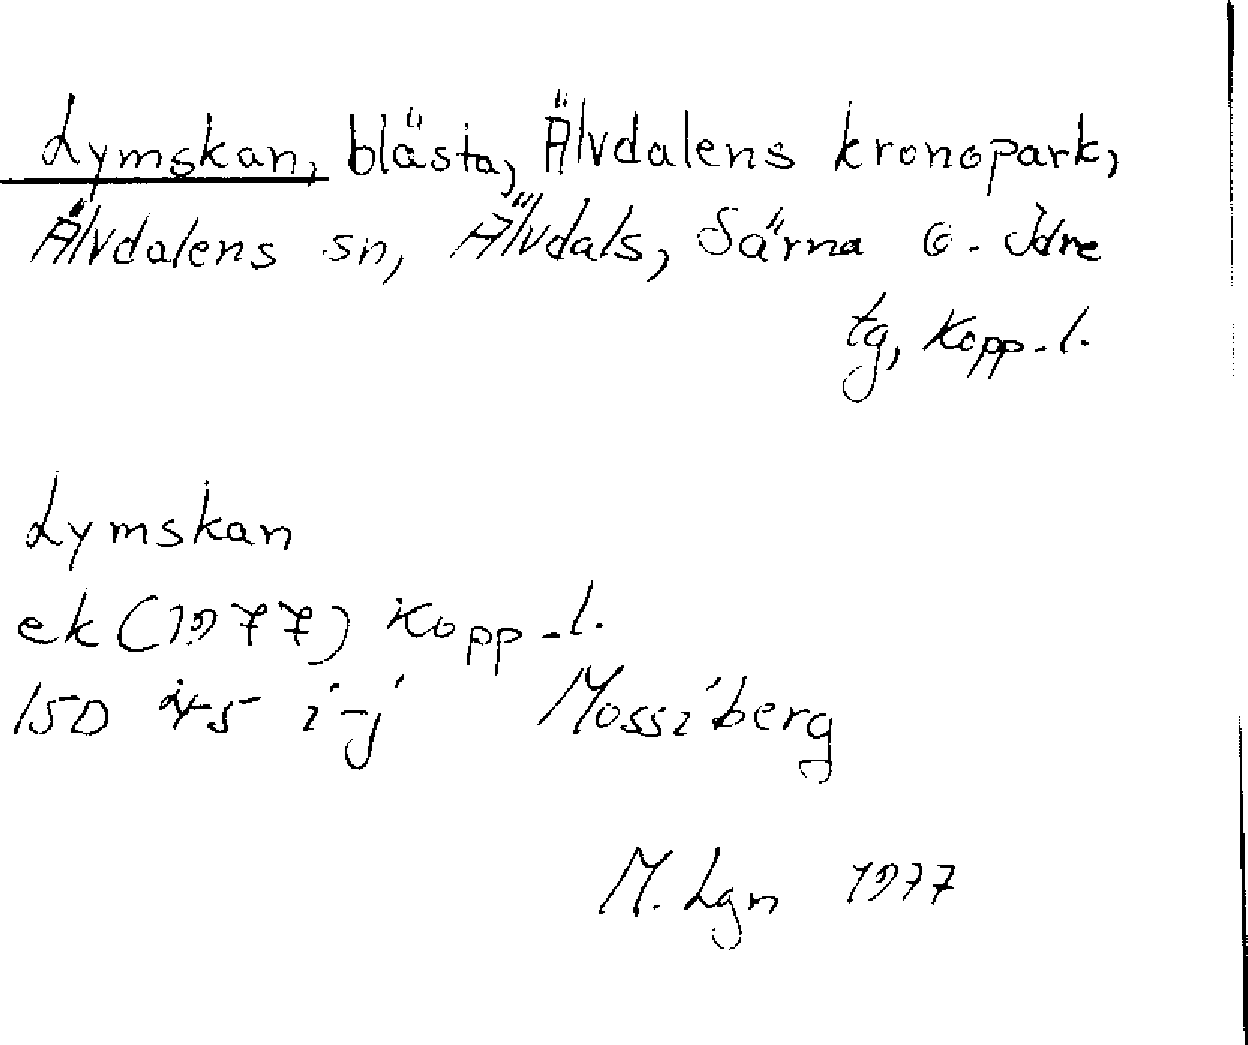 Lymskan, blästa, Älvdalens kronopark,
Älvdalens sn, Älvdals, Särna o. Idre
tg, Kopp. l.
Lymskan
ek (1977) Kopp. l.
15D 45 i-j Mossiberg
M. Lgn 1977